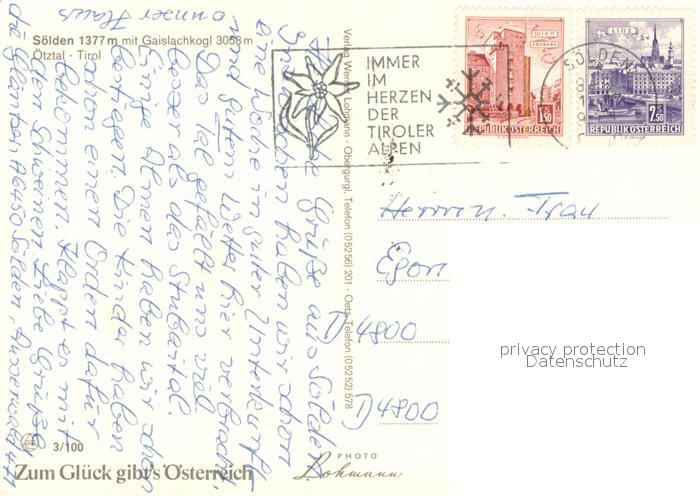 Sölden 1377 m mit Gaislachkogl 3058 m
Ötztal - Tirol
Herzliche Grüße aus Sölden
haben wir schon
eine Woche in guter Unterkunft
und gutem Wetter hier verbracht.
Das Tal gefällt uns viel
besser als das Stubaital.
Einige Almen haben wir schon
bestiegen. Die Kinder haben
schon einen Orden dafür
bekommen. Klappt es mit
den Schweinen. Liebe Grüße
A6450 Sölden,
unser Haus
3/100
Zum Glück gibt's Österreich
Verlag Lohmann - Obergurgl, Telefon (05256) 201 - Oetz, Telefon (05252) 578
PHOTO
Lohmann
IMMER
IM
HERZEN
DER
TIROLER
ALPEN
WIEN
ERDBERG
1.50
REPUBLIK ÖSTERREICH
LINZ
2.50
REPUBLIK ÖSTERREICH
SÖLDEN
Herrn u. Frau
Egon
D 4800
D 4800
privacy protection
Datenschutz